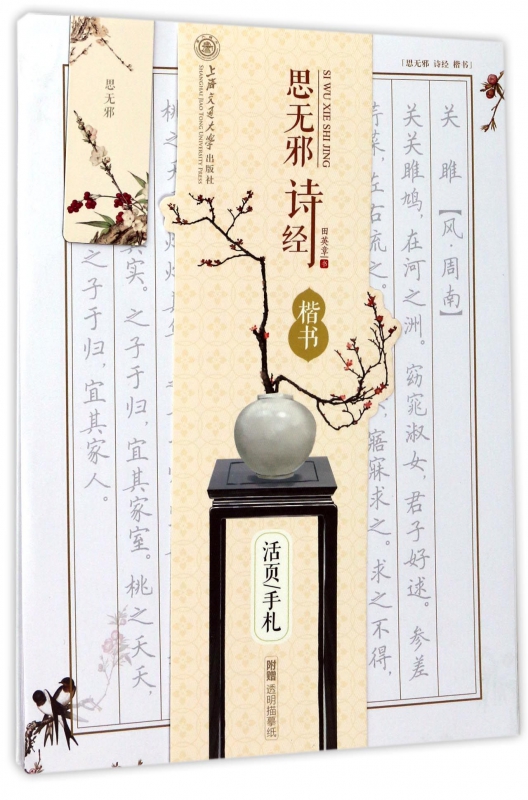 [思无邪 诗经 楷书]
关 雎【风·周南】
关关雎鸠，在河之洲。窈窕淑女，君子好逑。参差
荇菜，左右流之。
寤寐求之。求之不得，
SI WU XIE SHI JING
思无邪
诗经
田英章 书
楷书
上海交通大学出版社
SHANGHAI JIAO TONG UNIVERSITY PRESS
活页/手札
附赠 透明描摹纸
思无邪
桃之
实。之子于归，宜其家室。桃之夭夭，
之子于归，宜其家人。